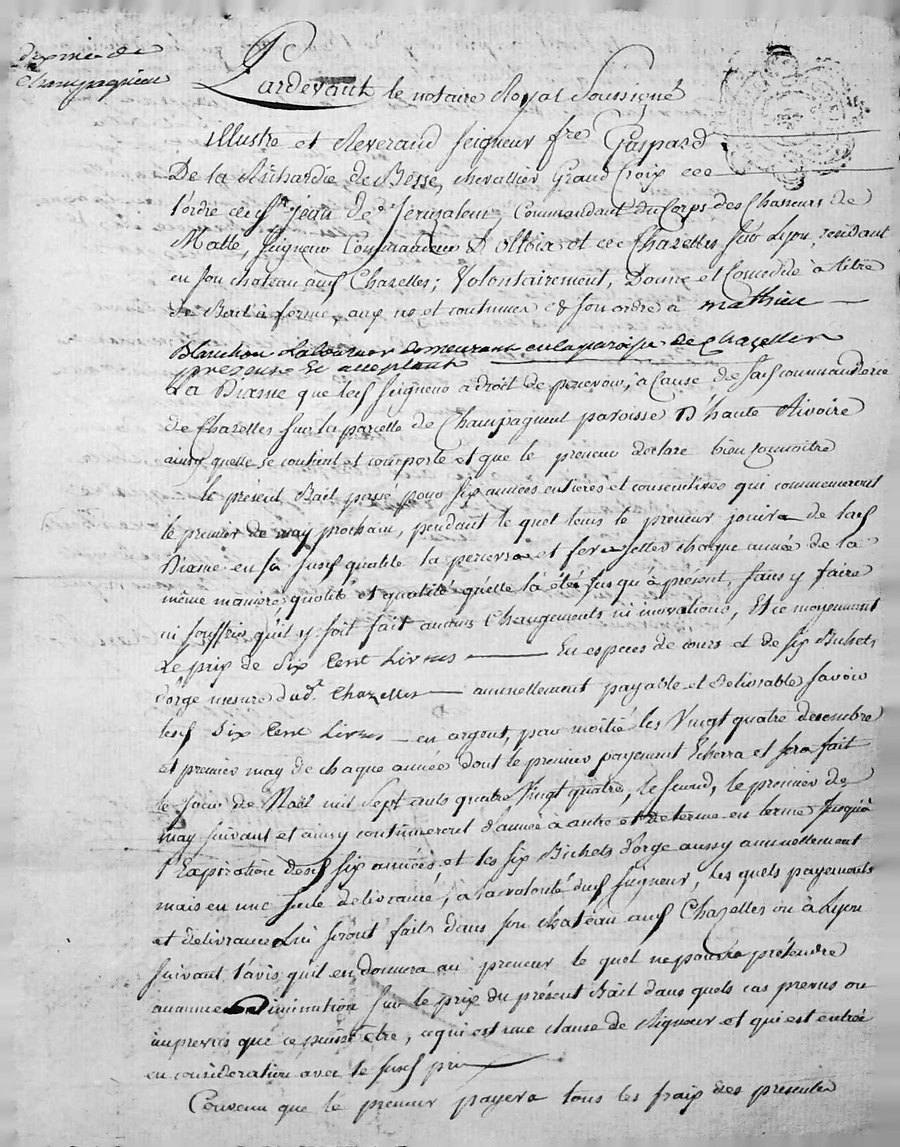 dixme de
Champagnieu
Pardevant le notaire Royal Soussigné
illustre et Reverand Seigneur frere Gaspard
De la Richardie de Besse, chevallier Grand Croix de
l'ordre de St jean de Jeruzalem, Commandant du Corps des Chasseurs de
Malte, Seigneur Commandeur D'olloix et de Chazelles sur Lyon, rendant
en son chateau aud Chazelles; Volontairement, Donne et Concedde à titre
de Bail à ferme, aux us et coutumes et son ordre à mathieu
Blanchon Laboureur demeurant en la paroisse de Chazelles
present et acceptant
La Dixme que led Seigneur a droit de percevoir, à Cause de sad commanderie
de Chazelles sur la parcelle de Champagneut paroisse D'haute Rivoire
ainsy quelle se contient et comporte et que le preneur declare bien connoitre
le présent Bail passé pour six années entieres et consecutives qui commenceront
le premier de may prochain, pendant le quel tems le preneur jouira de lad
Dixme en sa susd qualité la percevra et fera seller chaque année de la
même maniere quotité et qualité qu'elle l'a été jusqu'à présent, sans y faire
ni souffrir qu'il y soit fait aucuns Changements ni inovations, Et ce moyennant
Le prix de Six Cent Livres en especes de cours et de six Bichets
d'orge mesure dud. Chazelles annuellement payable et delivrable savoir
lesd Six Cent Livres en argent, par moitié les Vingt quatre decembre
et premier may de chaque année dont le premier payement Echerra et sera fait
le jour de Noël mil sept cents quatre Vingt quatre, le second, le premier de
may suivant et ainsy continueront d'année à autre et de terme en terme jusqu'à
l'Expiration desd six années, et les six Bichets d'orge aussy annuellement
mais en une seule delivrance, à la volonté dud Seigneur, les quels payements
et delivrance Lui seront faits dans son chateau aud Chazelles ou à Lyon
suivant l'avis qu'il en donnera au preneur le quel ne pourra prétendre
aucune Diminution sur le prix du présent Bail dans quels cas prevus ou
imprevus que ce puisse etre, ce qui est une clause de Rigueur et qui est entrée
en consideration avec le susd prix
Convenu que le preneur payera tous les frais des presentes